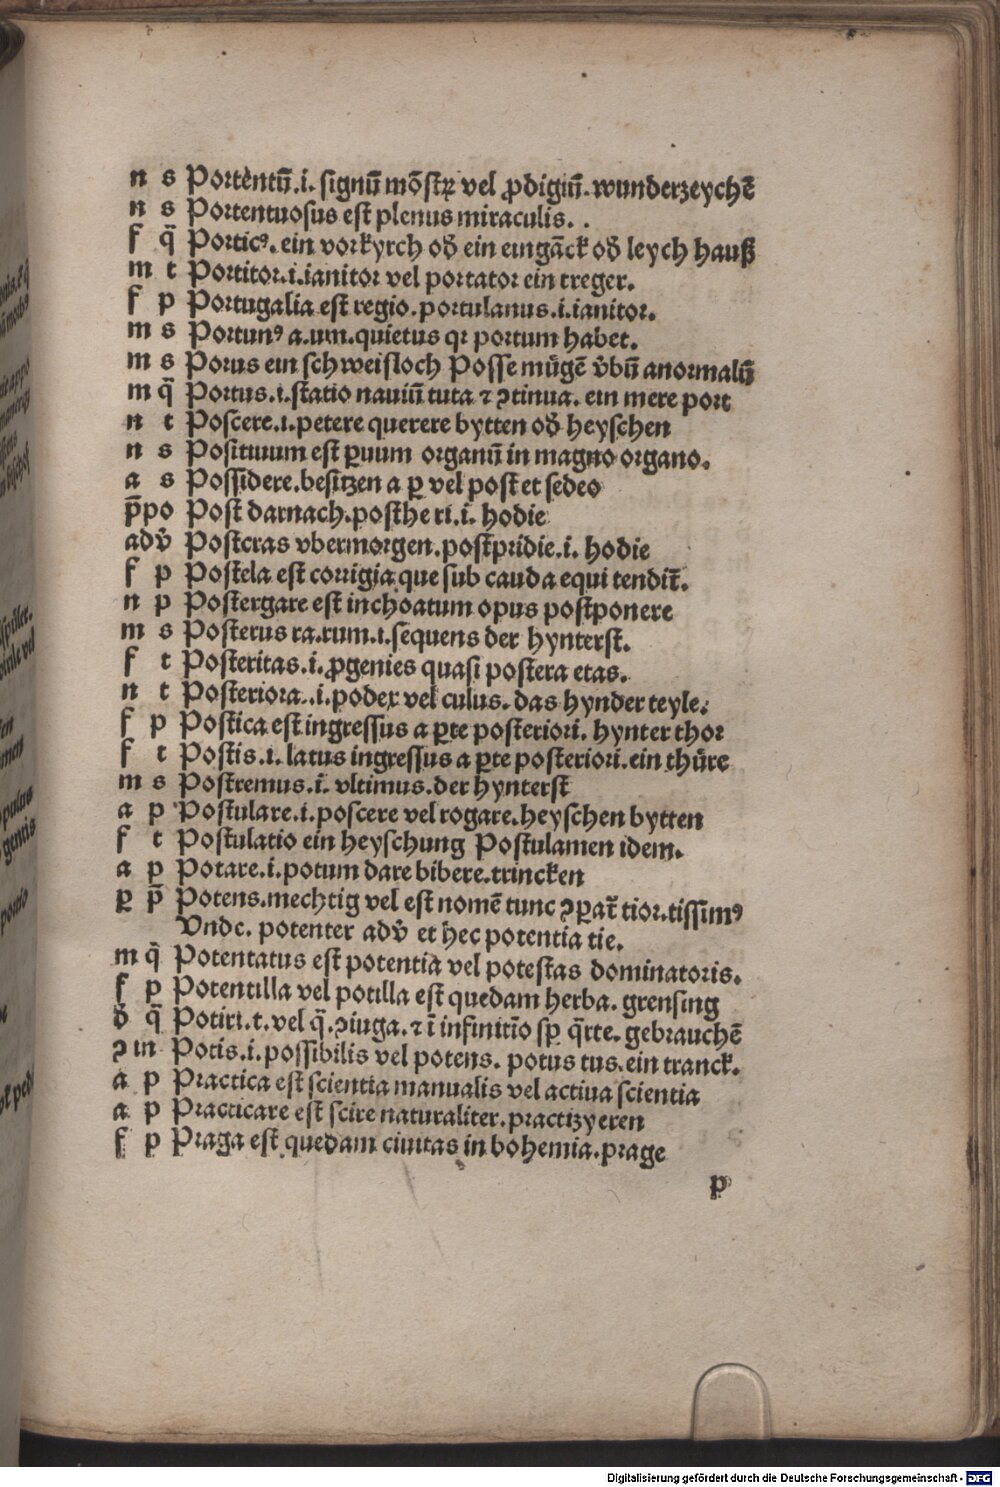 n s Portētū̄.i. signū mōstꝝ vel ꝓdigiū. wunderzeychē
n s Portentuosus est plenus miraculis. .
f q̄ Porticꝰ. ein vorkyrch od̄ ein eingāck od̄ leych hauß
m t Portitor.i.ianitor vel portator ein treger.
f p Portugalia est regio. portulanus.i.ianitor.
m s Portunꝰ a.um.quietus qr portum habet.
m s Porus ein schweisloch Posse mügē v̄bū anormalū
m q̄ Portus.i.statio nauiū tuta ⁊ ꝯtinua. ein mere port
n t Poscere.i.petere querere bytten od̄ heyschen
n s Posituum est ꝑuum organū in magno organo.
a s Possidere.besitzen a ꝑ vel post et sedeo
p̄po Post darnach.posthe ri.i. hodie
adv̄ Postcras vbermorgen.postpridie.i. hodie
f p Postela est corrigia que sub cauda equi tendit̄.
n p Postergare est inchoatum opus postponere
m s Posterus ra.rum.i.sequens der hynterst.
f t Posteritas.i.ꝓgenies quasi postera etas.
n t Posteriora..i.podex vel culus. das hynder teyle.
f p Postica est ingressus a ꝑte posteriori. hynter thor
f t Postis.i. latus ingressus a ꝑte posteriori.ein thüre
m s Postremus.i. vltimus.der hynterst
a p Postulare.i.poscere vel rogare.heyschen bytten
f t Postulatio ein heyschung Postulamen idem.
a p Potare.i.potum dare bibere.trincken
ꝑ p̄ Potens.mechtig vel est nomē tunc ꝯꝑat̄ tior.tissimꝰ
Vnde. potenter adv̄ et hec potentia tie.
m q̄ Potentatus est potentia vel potestas dominatoris.
f p Potentilla vel potilla est quedam herba. grensing
d̄ q̄ Potiri.t.vel q̄.ꝯiuga.⁊ ī infinitīo sꝑ q̄rte. gebrauchē
ꝯ in Potis.i.possibilis vel potens. potus tus.ein tranck.
a p Practica est scientia manualis vel actiua scientia
a p Practicare est scire naturaliter.practizyeren
f p Praga est quedam ciuitas in bohemia.prage
p
Digitalisierung gefördert durch die Deutsche Forschungsgemeinschaft - DFG